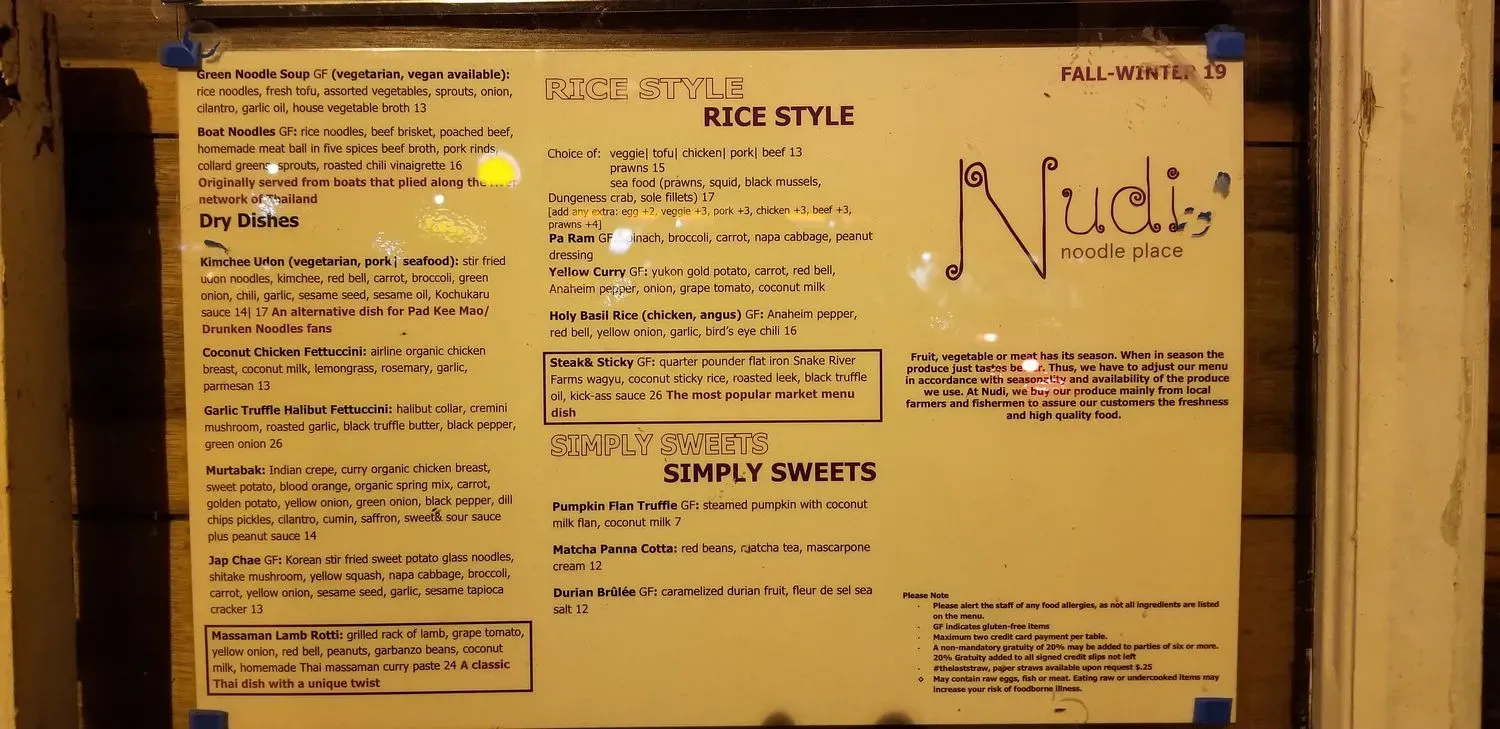 Green Noodle Soup GF (vegetarian, vegan available):
rice noodles, fresh tofu, assorted vegetables, sprouts, onion,
cilantro, garlic oil, house vegetable broth 13
Boat Noodles GF: rice noodles, beef brisket, poached beef,
homemade meat ball in five spices beef broth, pork rinds,
collard greens, sprouts, roasted chili vinaigrette 16
Originally served from boats that plied along the river
network of Thailand
Dry Dishes
Kimchee Udon (vegetarian, pork| seafood): stir fried
udon noodles, kimchee, red bell, carrot, broccoli, green
onion, chili, garlic, sesame seed, sesame oil, Kochukaru
sauce 14| 17 An alternative dish for Pad Kee Mao/
Drunken Noodles fans
Coconut Chicken Fettuccini: airline organic chicken
breast, coconut milk, lemongrass, rosemary, garlic,
parmesan 13
Garlic Truffle Halibut Fettuccini: halibut collar, cremini
mushroom, roasted garlic, black truffle butter, black pepper,
green onion 26
Murtabak: Indian crepe, curry organic chicken breast,
sweet potato, blood orange, organic spring mix, carrot,
golden potato, yellow onion, green onion, black pepper, dill
chips pickles, cilantro, cumin, saffron, sweet& sour sauce
plus peanut sauce 14
Jap Chae GF: Korean stir fried sweet potato glass noodles,
shitake mushroom, yellow squash, napa cabbage, broccoli,
carrot, yellow onion, sesame seed, garlic, sesame tapioca
cracker 13
Massaman Lamb Rotti: grilled rack of lamb, grape tomato,
yellow onion, red bell, peanuts, garbanzo beans, coconut
milk, homemade Thai massaman curry paste 24 A classic
Thai dish with a unique twist
RICE STYLE
RICE STYLE
Choice of: veggie| tofu| chicken| pork| beef 13
prawns 15
sea food (prawns, squid, black mussels,
Dungeness crab, sole fillets) 17
[add any extra: egg +2, veggie +3, pork +3, chicken +3, beef +3,
prawns +4]
Pa Ram GF: spinach, broccoli, carrot, napa cabbage, peanut
dressing
Yellow Curry GF: yukon gold potato, carrot, red bell,
Anaheim pepper, onion, grape tomato, coconut milk
Holy Basil Rice (chicken, angus) GF: Anaheim pepper,
red bell, yellow onion, garlic, bird's eye chili 16
Steak& Sticky GF: quarter pounder flat iron Snake River
Farms wagyu, coconut sticky rice, roasted leek, black truffle
oil, kick-ass sauce 26 The most popular market menu
dish
SIMPLY SWEETS
SIMPLY SWEETS
Pumpkin Flan Truffle GF: steamed pumpkin with coconut
milk flan, coconut milk 7
Matcha Panna Cotta: red beans, matcha tea, mascarpone
cream 12
Durian Brûlée GF: caramelized durian fruit, fleur de sel sea
salt 12
FALL-WINTER 19
Nudi
noodle place
Fruit, vegetable or meat has its season. When in season the
produce just tastes better. Thus, we have to adjust our menu
in accordance with seasonality and availability of the produce
we use. At Nudi, we buy our produce mainly from local
farmers and fishermen to assure our customers the freshness
and high quality food.
Please Note
· Please alert the staff of any food allergies, as not all ingredients are listed
on the menu.
· GF indicates gluten-free items
· Maximum two credit card payment per table.
· A non-mandatory gratuity of 20% may be added to parties of six or more.
20% Gratuity added to all signed credit slips not left
· #thelaststraw, paper straws available upon request $.25
◇ May contain raw eggs, fish or meat. Eating raw or undercooked items may
increase your risk of foodborne illness.